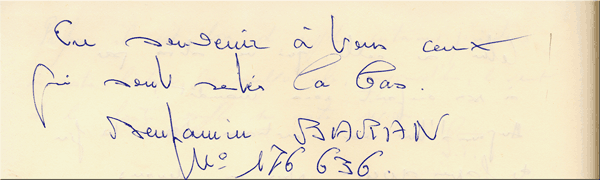 En souvenir à tous ceux
qui sont restés la bas.
Benjamin
N° 176 636.